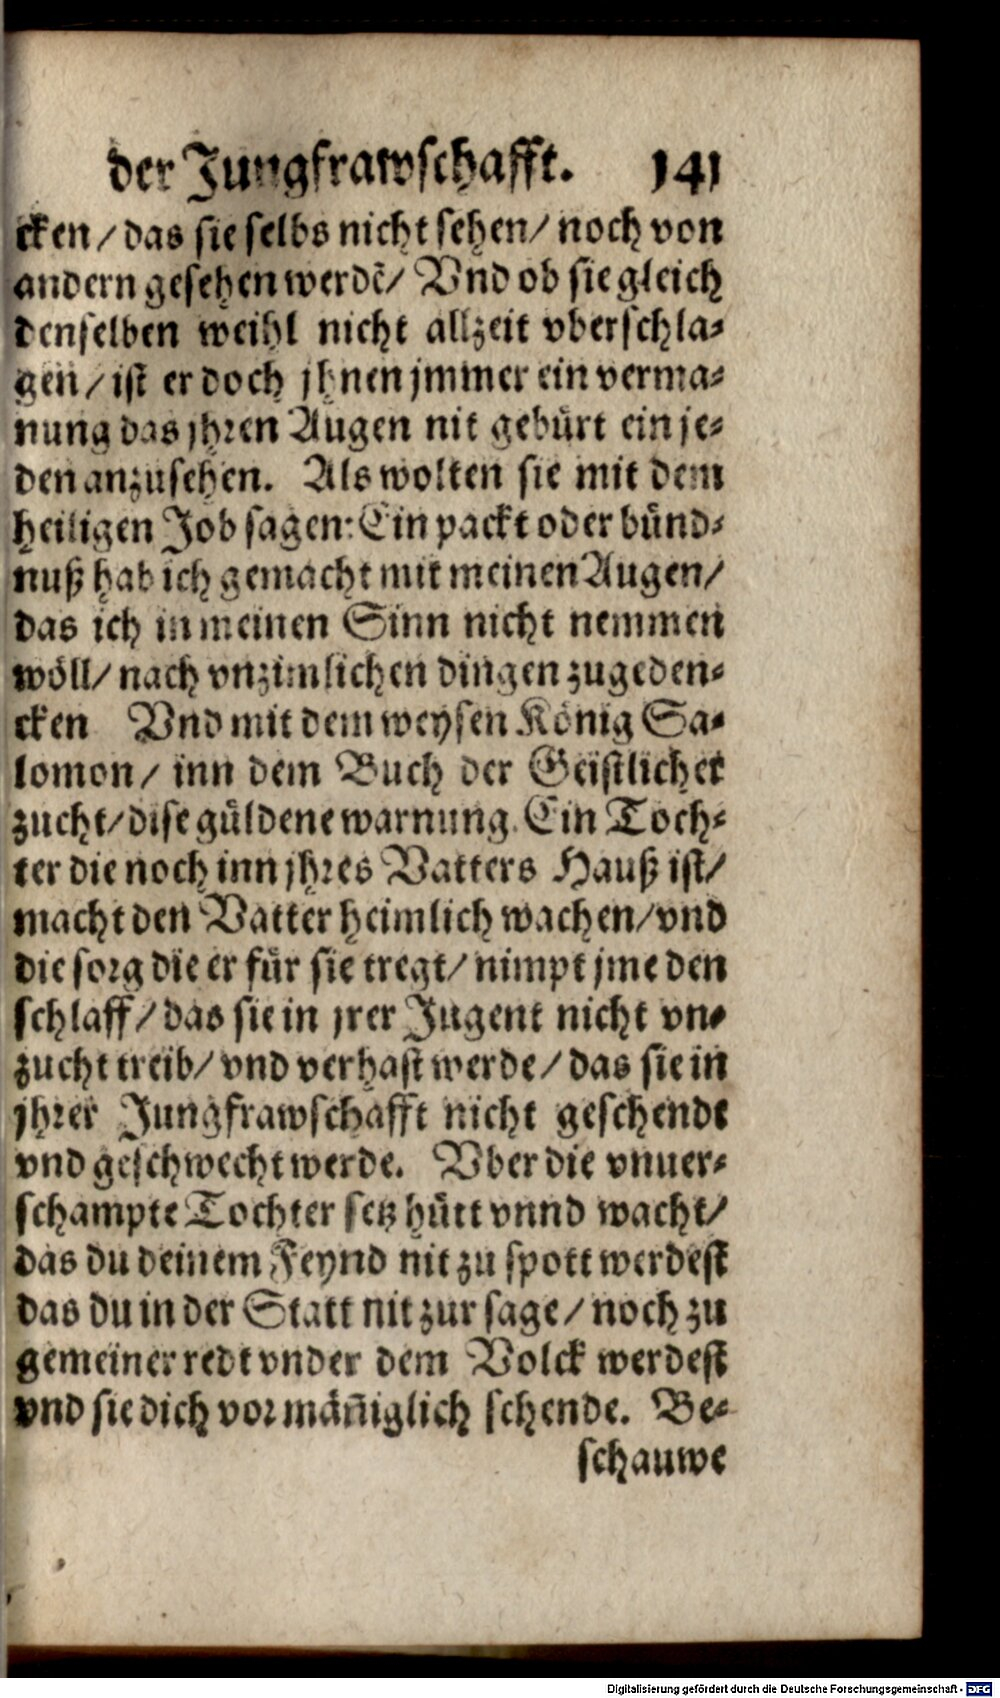 der Jungfrawschafft. 141
cken/das sie selbs nicht sehen/noch von
andern gesehen werdē/ Vnd ob sie gleich
denselben weihl nicht allzeit vberschla-
gen/ist er doch jhnen jmmer ein verma-
nung das jhren Augen nit gebürt ein je-
den anzusehen. Als wolten sie mit dem
heiligen Job sagen: Ein packt oder bünd-
nuß hab ich gemacht mit meinen Augen/
das ich in meinen Sinn nicht nemmen
wöll/nach vnzimlichen dingen zugeden-
cken Vnd mit dem weysen König Sa-
lomon/ inn dem Buch der Geistlicher
zucht/dise güldene warnung. Ein Toch-
ter die noch inn jhres Vatters Hauß ist/
macht den Vatter heimlich wachen/vnd
die sorg die er für sie tregt/nimpt jme den
schlaff/das sie in jrer Jugent nicht vn-
zucht treib/vnd verhast werde/das sie in
jhrer Jungfrawschafft nicht geschendt
vnd geschwecht werde. Vber die vnuer-
schampte Tochter setz hütt vnnd wacht/
das du deinem Feynd nit zu spott werdest
das du in der Statt nit zur sage/noch zu
gemeiner redt vnder dem Volck werdest
vnd sie dich vor mäñiglich schende. Be-
schauwe
Digitalisierung gefördert durch die Deutsche Forschungsgemeinschaft - DFG